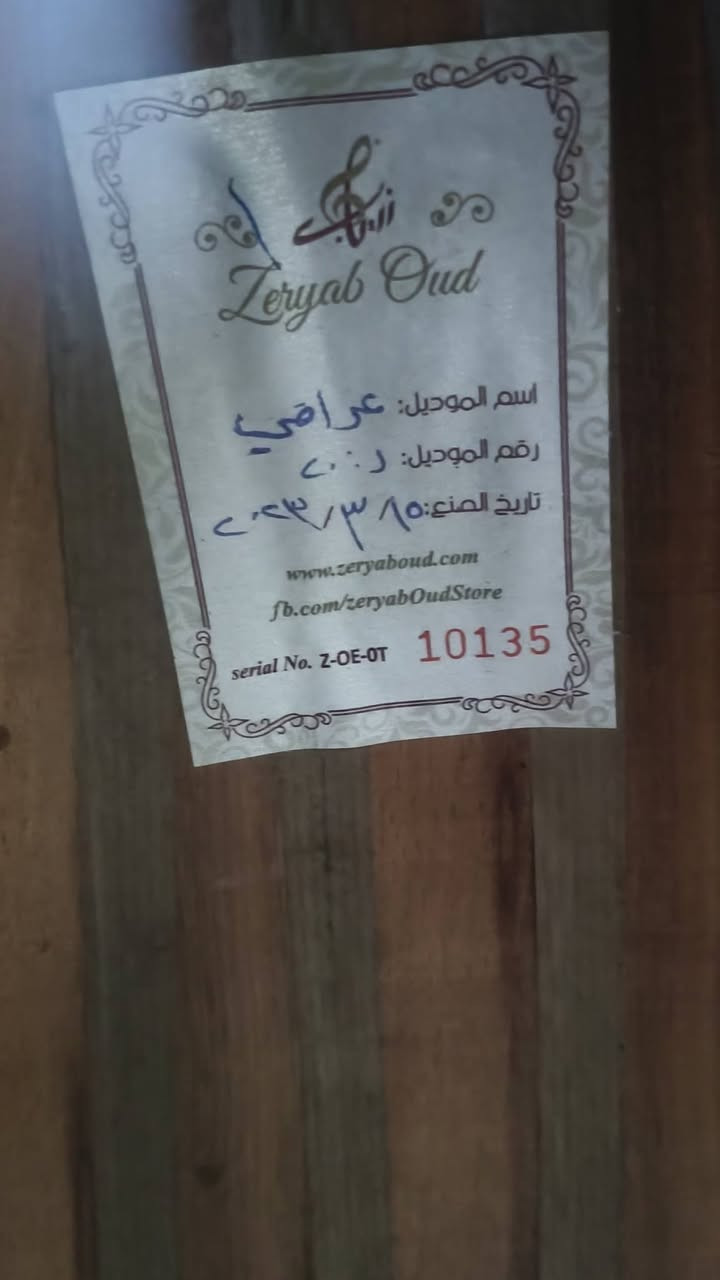 زرياب
Zeryab Oud
اسم الموديل: عراقي
رقم الموديل:
تاريخ الصنع: ١٥/٣/٢٠٢٣
www.zeryaboud.com
fb.com/zeryabOudStore
serial No. Z-OE-OT 10135